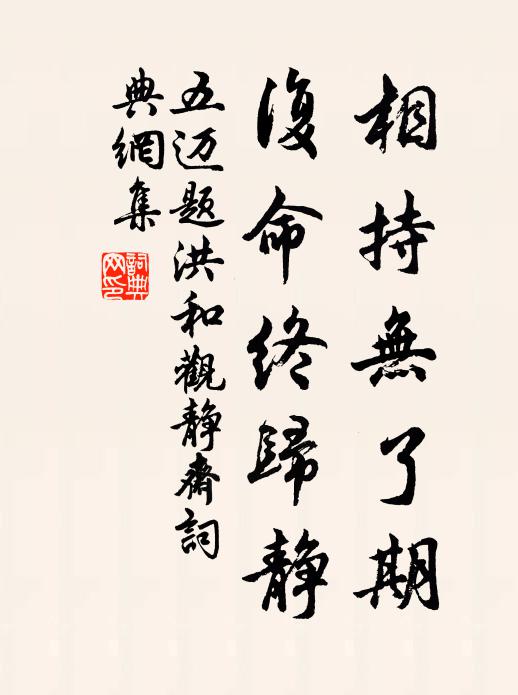 相持無了期
復命終歸静
五迈题洪和觀静齋詞
典網集
詞典
网印